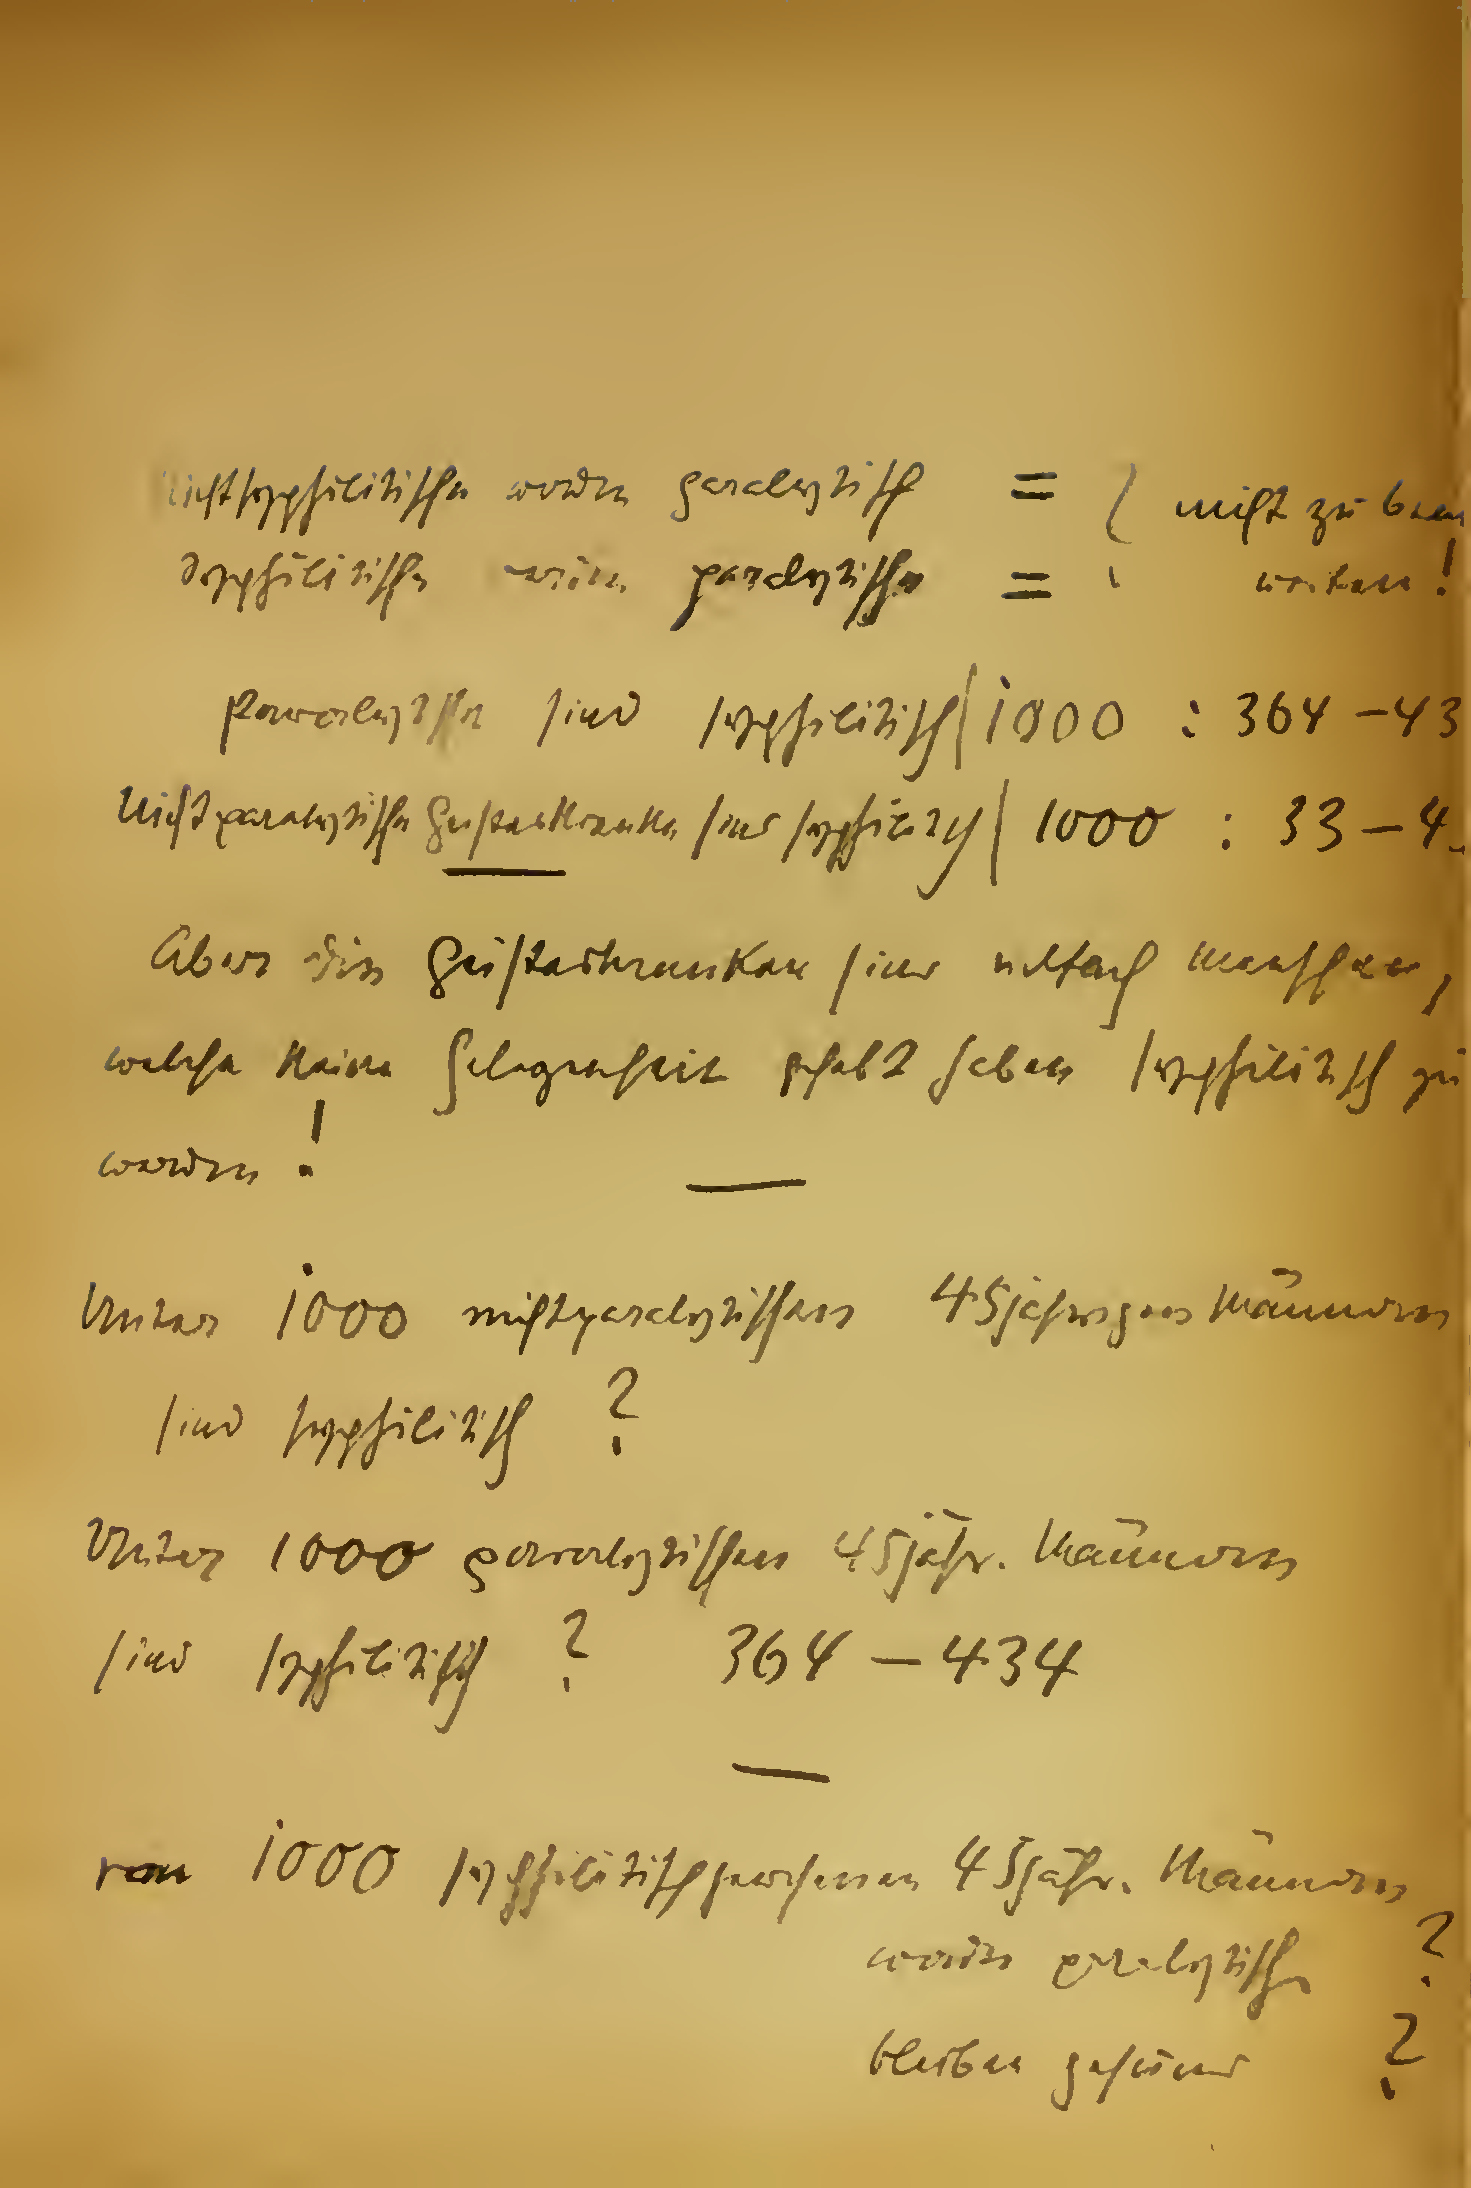 Nichtsyphilitische werden paralytisch = { nicht zu bean
Syphilitische werden paralytisch = worten!
Paralytische sind syphilitisch | 1000 : 364 – 43
Nichtparalytische Geisteskranke sind syphilitisch | 1000 : 33 – 4
Aber diese Geisteskranken sind vielfach Menschen,
welche keine Gelegenheit gehabt haben syphilitisch zu
werden!
Unter 1000 nichtparalytischen 45jährigen Männern
sind syphilitisch ?
Unter 1000 paralytischen 45jähr. Männern
sind syphilitisch ? 364 – 434
von 1000 syphilitischgewesenen 45jähr. Männern
werden paralytisch ?
bleiben gesund ?